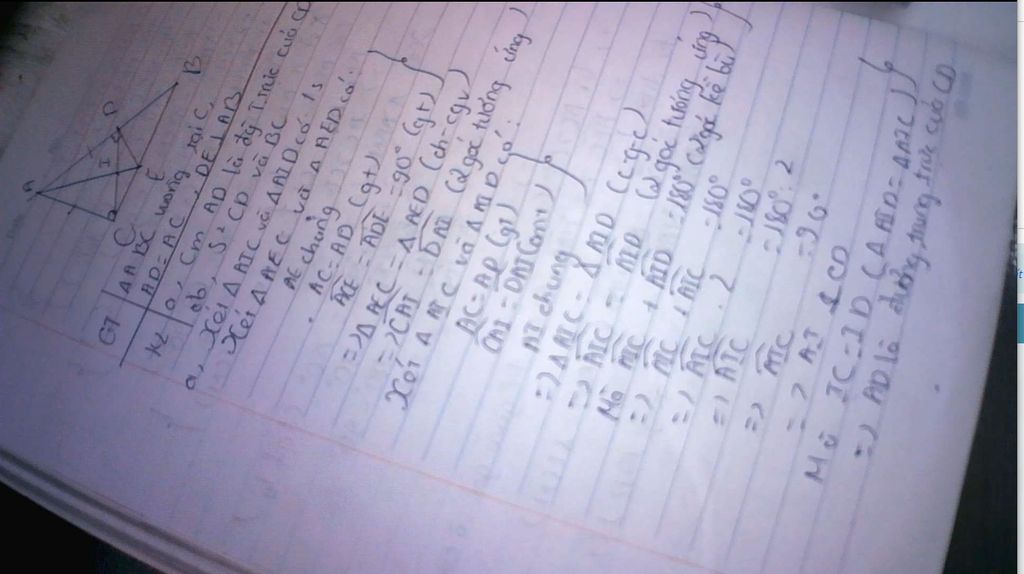 A
B
D
I
E
C
GT
ΔABC vuông tại C,
AD = AC, DE ⊥ AB
KL
a, Cm AD là đg Trực của CD
b, S² CD và BC
a, Xét ΔAIC và ΔAID có
Xét ΔAEC và ΔAED có:
AE chung
AC = AD (gt)
ACE = ADE = 90° (gt)
=> ΔAEC = ΔAED (ch-cgv)
=> CAI = DAI (2 góc tương ứng)
Xét ΔAIC và ΔAID có:
AC = AD (gt)
CAI = DAI (cmt)
AI chung
=> ΔAIC = ΔAID (c-g-c)
=> AIC = AID (2 góc tương ứng)
Mà AIC + AID = 180° (2 góc kề bù)
=> AIC + AIC = 180°
=> AIC . 2 = 180°
=> AIC = 180° : 2
=> AIC = 90°
=> AI ⊥ CD
Mà IC = ID (ΔAID = ΔAIC)
=> AD là đường trung trực của CD